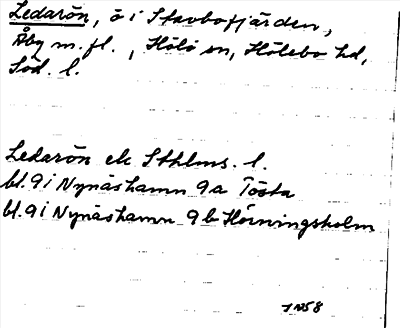 Ledarön, ö i Stavbofjärden,
Åby m.fl., Hölö sn, Hölebo hd,
Söd. l.
Ledarön ek Sthlms. l.
bl. 9i Nynäshamn 9a Tösta
bl. 9i Nynäshamn 9b Hörningsholm